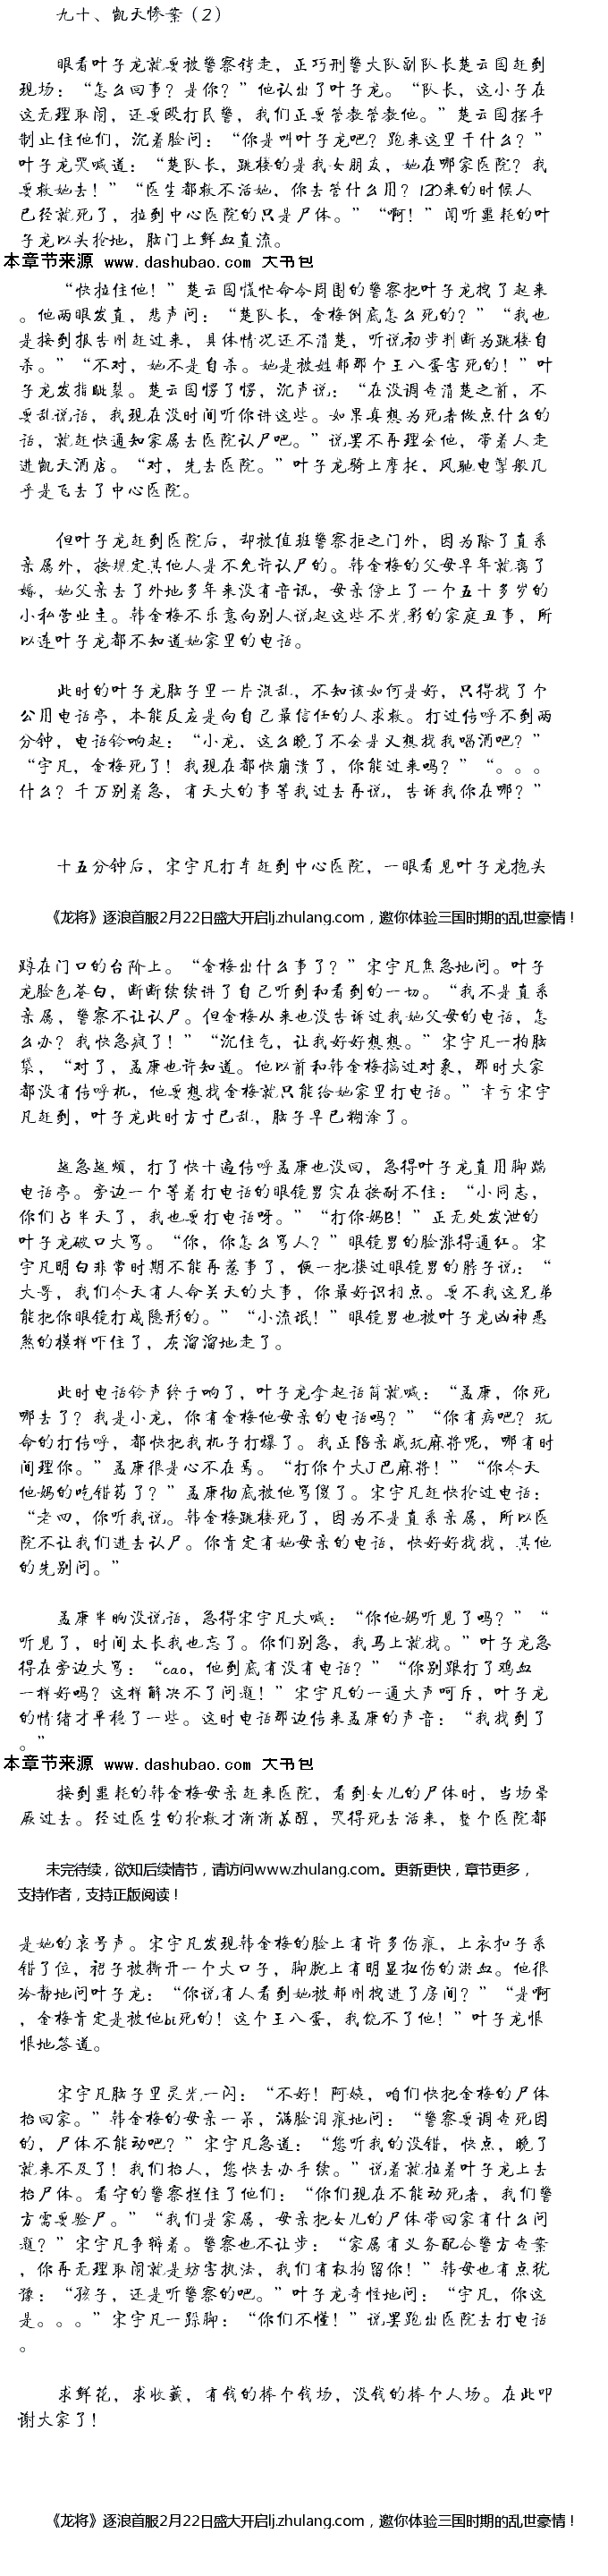 九十、凯天惨案（2）
眼看叶子龙就要被警察铐走，正巧刑警大队副队长楚云国赶到
现场：“怎么回事？是你？”他认出了叶子龙。“队长，这小子在
这无理取闹，还要殴打民警，我们正要管教管教他。”楚云国摆手
制止住他们，沉着脸问：“你是叫叶子龙吧？跑来这里干什么？”
叶子龙哭喊道：“楚队长，跳楼的是我女朋友，她在哪家医院？我
要救她去！”“医生都救不活她，你去管什么用？120来的时候人
已经就死了，拉到中心医院的只是尸体。”“啊！”闻听噩耗的叶
子龙以头抢地，脑门上鲜血直流。
本章节来源 www.dashubao.com 大书包
“快拉住他！”楚云国慌忙命令周围的警察把叶子龙拽了起来
。他两眼发直，悲声问：“楚队长，金梅倒底怎么死的？”“我也
是接到报告刚赶过来，具体情况还不清楚，听说初步判断为跳楼自
杀。”“不对，她不是自杀。她是被姓郝那个王八蛋害死的！”叶
子龙发指眦裂。楚云国愣了愣，沉声说：“在没调查清楚之前，不
要乱说话，我现在没时间听你讲这些。如果真想为死者做点什么的
话，就赶快通知家属去医院认尸吧。”说罢不再理会他，带着人走
进凯天酒店。“对，先去医院。”叶子龙骑上摩托，风驰电掣般几
乎是飞去了中心医院。
但叶子龙赶到医院后，却被值班警察拒之门外，因为除了直系
亲属外，按规定其他人是不允许认尸的。韩金梅的父母早年就离了
婚，她父亲去了外地多年来没有音讯，母亲傍上了一个五十多岁的
小私营业主。韩金梅不乐意向别人说起这些不光彩的家庭丑事，所
以连叶子龙都不知道她家里的电话。
此时的叶子龙脑子里一片混乱，不知该如何是好，只得找了个
公用电话亭，本能反应是向自己最信任的人求救。打过传呼不到两
分钟，电话铃响起：“小龙，这么晚了不会是又想找我喝酒吧？”
“宇凡，金梅死了！我现在都快崩溃了，你能过来吗？”“。。。
什么？千万别着急，有天大的事等我过去再说，告诉我你在哪？”
十五分钟后，宋宇凡打车赶到中心医院，一眼看见叶子龙抱头
《龙将》逐浪首服2月22日盛大开启lj.zhulang.com，邀你体验三国时期的乱世豪情！
蹲在门口的台阶上。“金梅出什么事了？”宋宇凡焦急地问。叶子
龙脸色苍白，断断续续讲了自己听到和看到的一切。“我不是直系
亲属，警察不让认尸。但金梅从来也没告诉过我她父母的电话，怎
么办？我快急疯了！”“沉住气，让我好好想想。”宋宇凡一拍脑
袋，“对了，孟康也许知道。他以前和韩金梅搞过对象，那时大家
都没有传呼机，他要想找金梅就只能给她家里打电话。”幸亏宋宇
凡赶到，叶子龙此时方寸已乱，脑子早已糊涂了。
越急越烦，打了快十遍传呼孟康也没回，急得叶子龙直用脚踹
电话亭。旁边一个等着打电话的眼镜男实在按耐不住：“小同志，
你们占半天了，我也要打电话呀。”“打你妈B！”正无处发泄的
叶子龙破口大骂。“你，你怎么骂人？”眼镜男的脸涨得通红。宋
宇凡明白非常时期不能再惹事了，便一把搂过眼镜男的脖子说：“
大哥，我们今天有人命关天的大事，你最好识相点。要不我这兄弟
能把你眼镜打成隐形的。”“小流氓！”眼镜男也被叶子龙凶神恶
煞的模样吓住了，灰溜溜地走了。
此时电话铃声终于响了，叶子龙拿起话筒就喊：“孟康，你死
哪去了？我是小龙，你有金梅他母亲的电话吗？”“你有病吧？玩
命的打传呼，都快把我机子打爆了。我正陪亲戚玩麻将呢，哪有时
间理你。”孟康很是心不在焉。“打你个大J巴麻将！”“你今天
他妈的吃错药了？”孟康彻底被他骂傻了。宋宇凡赶快抢过电话：
“老四，你听我说。韩金梅跳楼死了，因为不是直系亲属，所以医
院不让我们进去认尸。你肯定有她母亲的电话，快好好找找，其他
的先别问。”
孟康半晌没说话，急得宋宇凡大喊：“你他妈听见了吗？”“
听见了，时间太长我也忘了。你们别急，我马上就找。”叶子龙急
得在旁边大骂：“cao，他到底有没有电话？”“你别跟打了鸡血
一样好吗？这样解决不了问题！”宋宇凡的一通大声呵斥，叶子龙
的情绪才平稳了一些。这时电话那边传来孟康的声音：“我找到了
。”
本章节来源 www.dashubao.com 大书包
接到噩耗的韩金梅母亲赶来医院，看到女儿的尸体时，当场晕
厥过去。经过医生的抢救才渐渐苏醒，哭得死去活来，整个医院都
未完待续，欲知后续情节，请访问www.zhulang.com。更新更快，章节更多，
支持作者，支持正版阅读！
是她的哀号声。宋宇凡发现韩金梅的脸上有许多伤痕，上衣扣子系
错了位，裙子被撕开一个大口子，脚腕上有明显扭伤的淤血。他很
冷静地问叶子龙：“你说有人看到她被郝刚拽进了房间？”“是啊
，金梅肯定是被他bi死的！这个王八蛋，我饶不了他！”叶子龙恨
恨地答道。
宋宇凡脑子里灵光一闪：“不好！阿姨，咱们快把金梅的尸体
抬回家。”韩金梅的母亲一呆，满脸泪痕地问：“警察要调查死因
的，尸体不能动吧？”宋宇凡急道：“您听我的没错，快点，晚了
就来不及了！我们抬人，您快去办手续。”说着就拉着叶子龙上去
抬尸体。看守的警察拦住了他们：“你们现在不能动死者，我们警
方需要验尸。”“我们是家属，母亲把女儿的尸体带回家有什么问
题？”宋宇凡争辩着。警察也不让步：“家属有义务配合警方查案
，你再无理取闹就是妨害执法，我们有权拘留你！”韩母也有点犹
豫：“孩子，还是听警察的吧。”叶子龙奇怪地问：“宇凡，你这
是。。。”宋宇凡一跺脚：“你们不懂！”说罢跑出医院去打电话
。
求鲜花，求收藏，有钱的捧个钱场，没钱的捧个人场。在此叩
谢大家了！
《龙将》逐浪首服2月22日盛大开启lj.zhulang.com，邀你体验三国时期的乱世豪情！